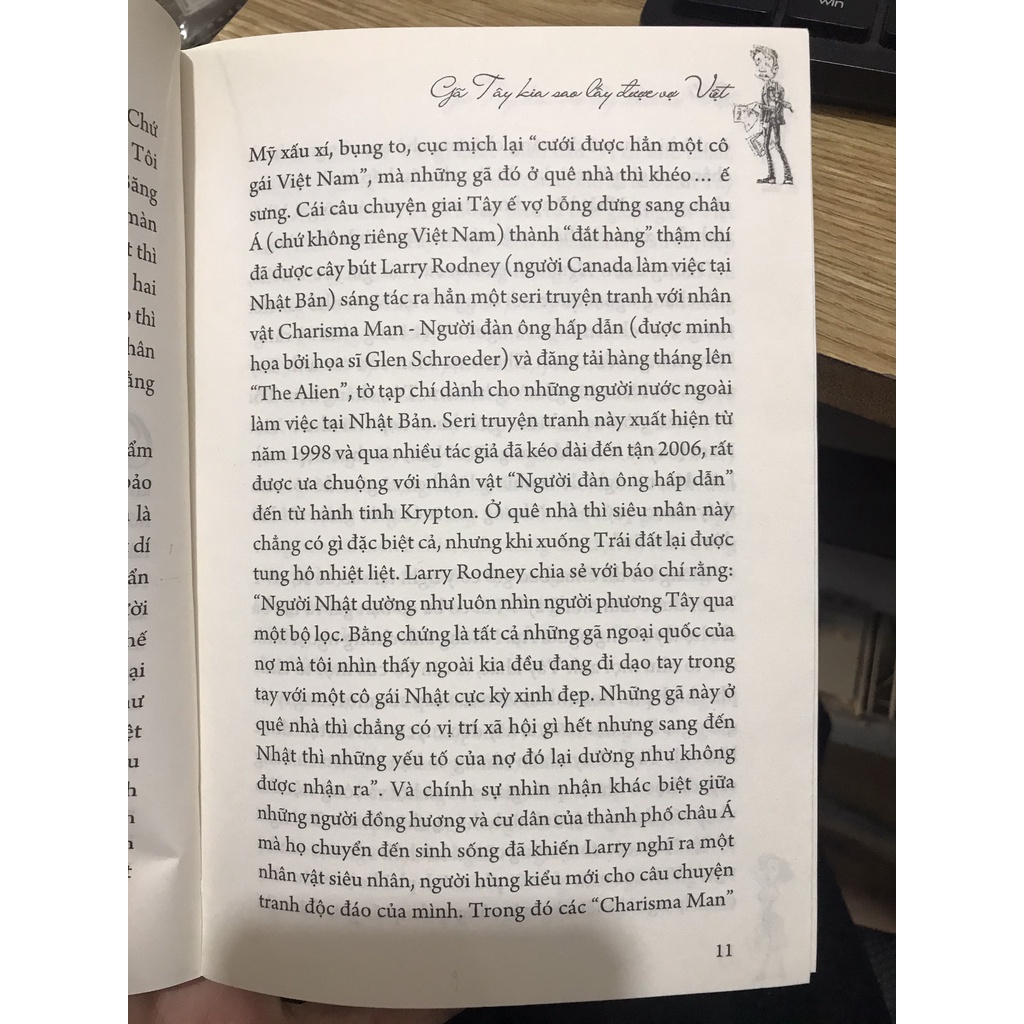 win
Chứ
Tôi
màn
t thì
hai
thì
hân
ằng
ẩm
bảo
là
dí
ẩn
ời
hế
ại
ư
ệt
u
h
Gã Tây kia sao lấy được vợ Việt
Mỹ xấu xí, bụng to, cục mịch lại “cưới được hẳn một cô
gái Việt Nam”, mà những gã đó ở quê nhà thì khéo... ế
sưng. Cái câu chuyện giai Tây ế vợ bỗng dưng sang châu
Á (chứ không riêng Việt Nam) thành “đắt hàng” thậm chí
đã được cây bút Larry Rodney (người Canada làm việc tại
Nhật Bản) sáng tác ra hẳn một seri truyện tranh với nhân
vật Charisma Man - Người đàn ông hấp dẫn (được minh
họa bởi họa sĩ Glen Schroeder) và đăng tải hàng tháng lên
“The Alien”, tờ tạp chí dành cho những người nước ngoài
làm việc tại Nhật Bản. Seri truyện tranh này xuất hiện từ
năm 1998 và qua nhiều tác giả đã kéo dài đến tận 2006, rất
được ưa chuộng với nhân vật “Người đàn ông hấp dẫn”
đến từ hành tinh Krypton. Ở quê nhà thì siêu nhân này
chẳng có gì đặc biệt cả, nhưng khi xuống Trái đất lại được
tung hô nhiệt liệt. Larry Rodney chia sẻ với báo chí rằng:
“Người Nhật dường như luôn nhìn người phương Tây qua
một bộ lọc. Bằng chứng là tất cả những gã ngoại quốc của
nợ mà tôi nhìn thấy ngoài kia đều đang đi dạo tay trong
tay với một cô gái Nhật cực kỳ xinh đẹp. Những gã này ở
quê nhà thì chẳng có vị trí xã hội gì hết nhưng sang đến
Nhật thì những yếu tố của nợ đó lại dường như không
được nhận ra”. Và chính sự nhìn nhận khác biệt giữa
những người đồng hương và cư dân của thành phố châu Á
mà họ chuyển đến sinh sống đã khiến Larry nghĩ ra một
nhân vật siêu nhân, người hùng kiểu mới cho câu chuyện
tranh độc đáo của mình. Trong đó các “Charisma Man”
11